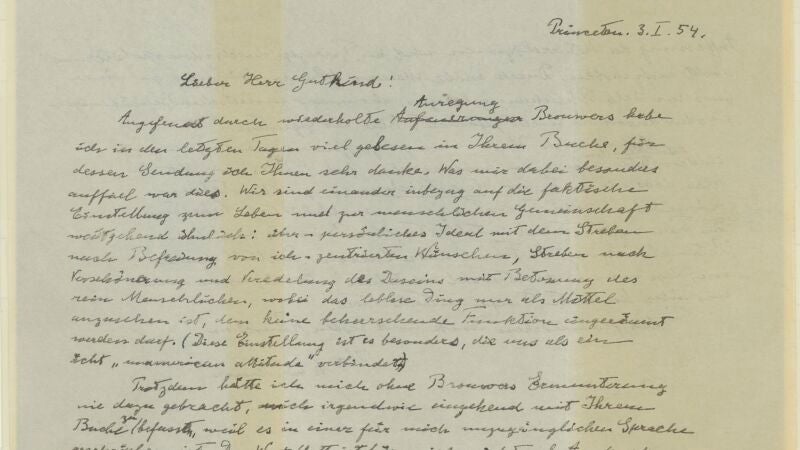 Princeton. 3. I. 54.
Lieber Herr Gutkind!
Anregung
Angefeuert durch wiederholte Brouwers habe
ich in den letzten Tagen viel gelesen in Ihrem Buche, für
dessen Sendung ich Ihnen sehr danke. Was mir dabei besonders
auffiel war dies. Wir sind einander inbezug auf die faktische
Einstellung zum Leben und zur menschlichen Gemeinschaft
weitgehend ähnlich: über-persönliches Ideal mit dem Streben
nach Befreiung von ich-zentrierten Wünschen, Streben nach
Verschönerung und Veredelung des Daseins mit Betonung des
rein Menschlichen, wobei das leblose Ding nur als Mittel
anzusehen ist, dem keine beherrschende Funktion eingeräumt
werden darf. (Diese Einstellung ist es besonders, die uns als ein
echt „unamerican attitude" verbindet)
Trotzdem hätte ich mich ohne Brouwers Ermunterung
nie dazu gebracht, mich irgendwie eingehend mit Ihrem
Buche zu befassen, weil es in einer für mich unzugänglichen Sprache
geschrieben ist.